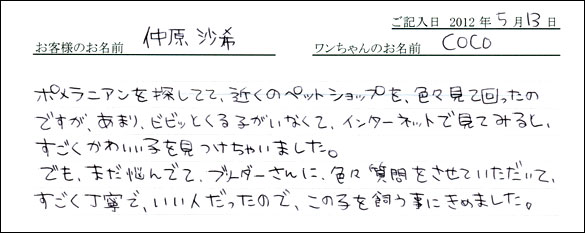 ご記入日 2012 年 5 月 13 日
お客様のお名前 仲原 沙希 ワンちゃんのお名前 COCO
ポメラニアンを探してて、近くのペットショップを、色々見て回ったの
ですが、あまり、ビビッとくる子がいなくて、インターネットで見てみると、
すごくかわいい子を見つけちゃいました。
でも、まだ悩んでて、ブリーダーさんに、色々質問をさせていただいて、
すごく丁寧で、いい人だったので、この子を飼う事にきめました。